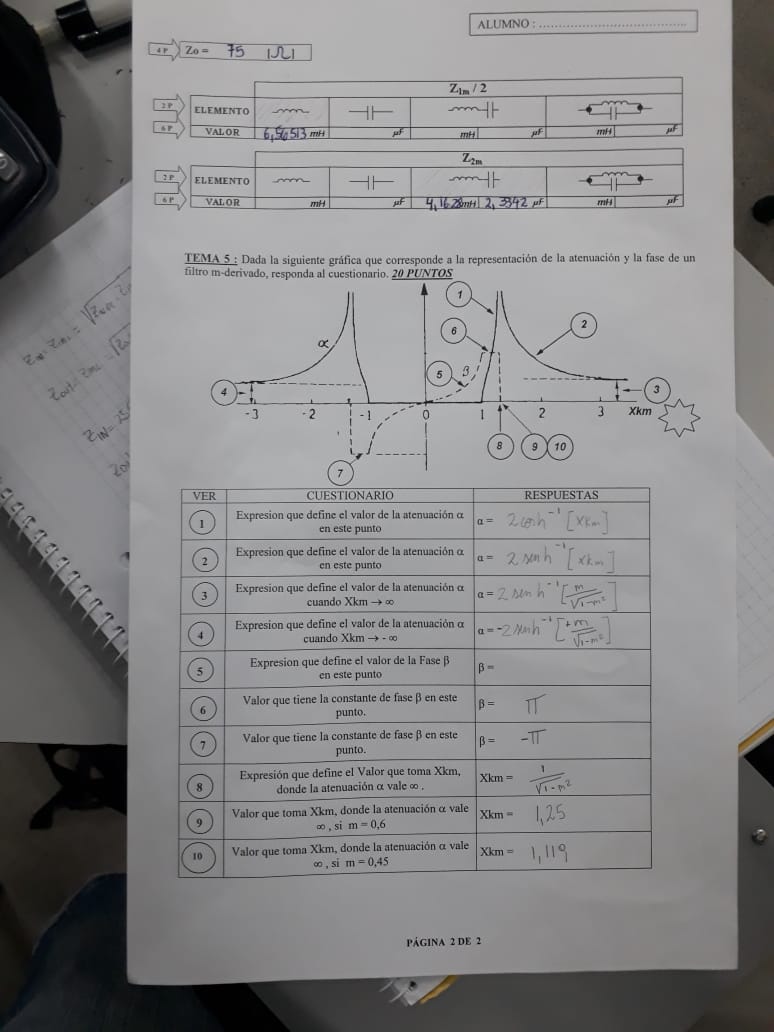 ALUMNO : ........................................
4 P Zo = 75 |Ω|
Z1m / 2
2 P ELEMENTO
6 P VALOR 6,56513 mH µF mH µF mH µF
Z2m
2 P ELEMENTO
6 P VALOR mH µF 4,1628 mH 2,3342 µF mH µF
TEMA 5 : Dada la siguiente gráfica que corresponde a la representación de la atenuación y la fase de un
filtro m-derivado, responda al cuestionario. 20 PUNTOS
1
2
6
α
5 β
4
3
-3 -2 -1 0 1 2 3 Xkm
8 9 10
7
VER CUESTIONARIO RESPUESTAS
1 Expresion que define el valor de la atenuación α
en este punto
α = 2 cosh⁻¹ [xkm]
2 Expresion que define el valor de la atenuación α
en este punto
α = 2 senh⁻¹ [xkm]
3 Expresion que define el valor de la atenuación α
cuando Xkm → ∞
α = 2 senh⁻¹ [m/√1-m²]
4 Expresion que define el valor de la atenuación α
cuando Xkm → - ∞
α = -2 senh⁻¹ [+m/√1-m²]
5 Expresion que define el valor de la Fase β
en este punto
β =
6 Valor que tiene la constante de fase β en este
punto.
β = π
7 Valor que tiene la constante de fase β en este
punto.
β = -π
8 Expresión que define el Valor que toma Xkm,
donde la atenuación α vale ∞ .
Xkm = 1/√1-m²
9 Valor que toma Xkm, donde la atenuación α vale
∞ , si m = 0,6
Xkm = 1,25
10 Valor que toma Xkm, donde la atenuación α vale
∞ , si m = 0,45
Xkm = 1,119
PÁGINA 2 DE 2